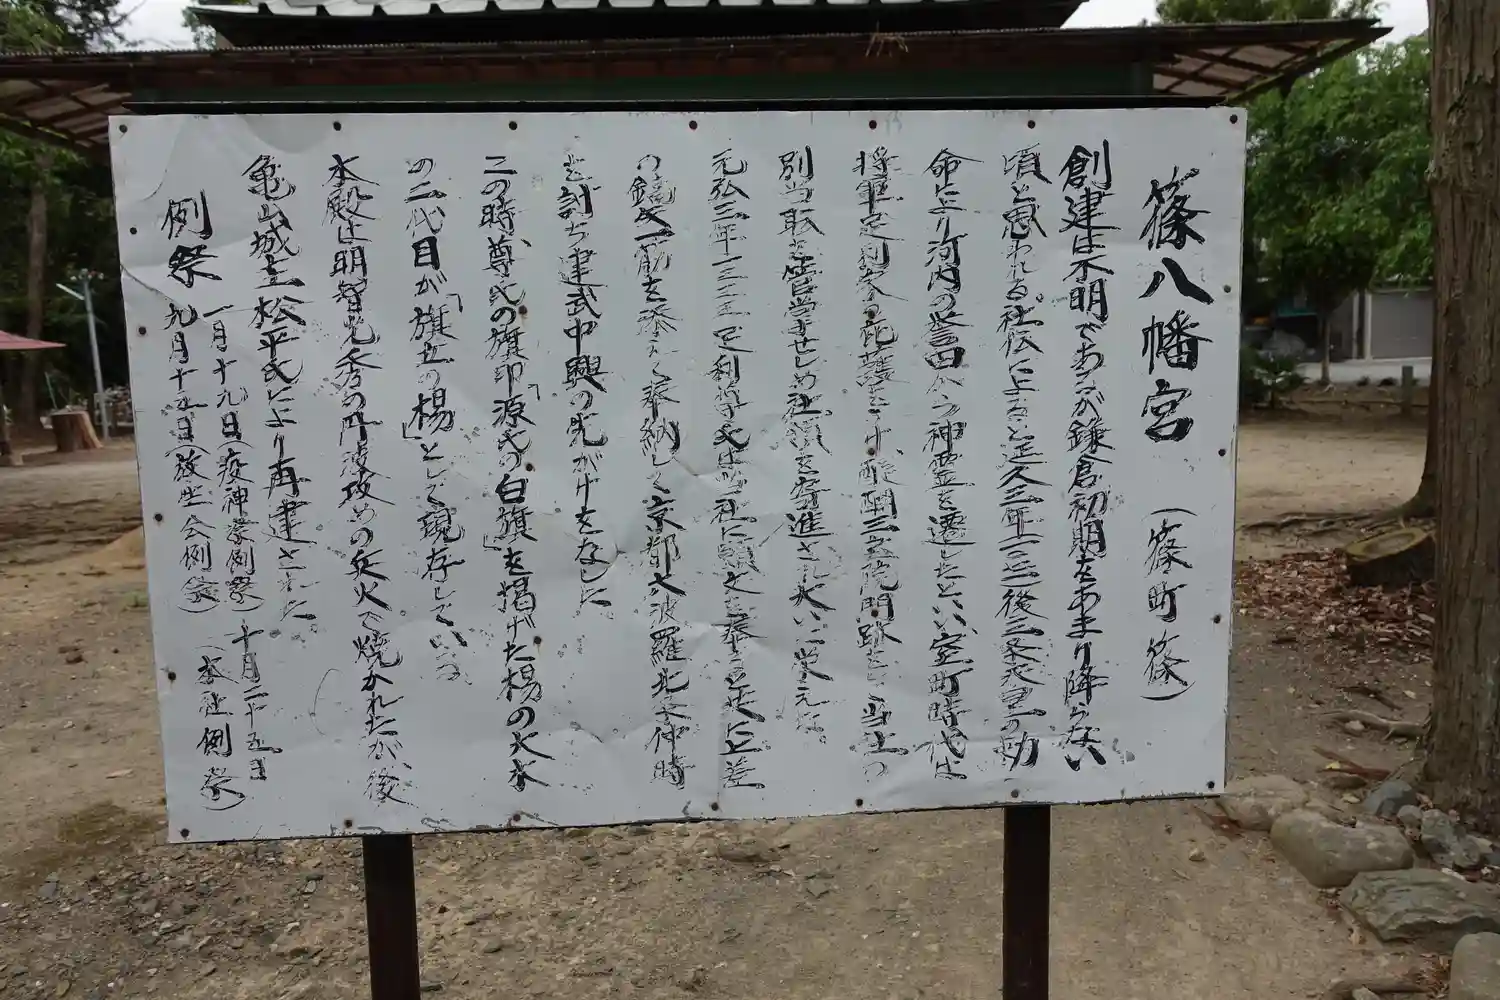 篠八幡宮 （篠町篠）
創建は不明であるが鎌倉初期をあまり降らない
頃と思われる。社伝によると延久三年後三条天皇の勅
命により河内の誉田から神霊を遷したといい、室町時代は
将軍足利義の庇護をうけ、醍醐三宝院門跡を当土の
別当取を営学させしめ社領を寄進され大いに栄えた。
元弘三年一三三三足利尊氏は当社に願文を奉る正に上差
の鏑矢一筋を添えて奉納して京都六波羅北条仲時
を討ち建武中興の先がけをなした
この時、尊氏の旗印「源氏の白旗」を掲げた楊の大木
の二代目が「旗立の楊」として現存している
本殿は明智光秀の丹波攻めの兵火で焼かれたが、後、
亀山城主松平氏により再建された
例祭 一月十九日（疫神祭例祭） 十月二十五日
九月十五日（放生会例祭） （本社例祭）